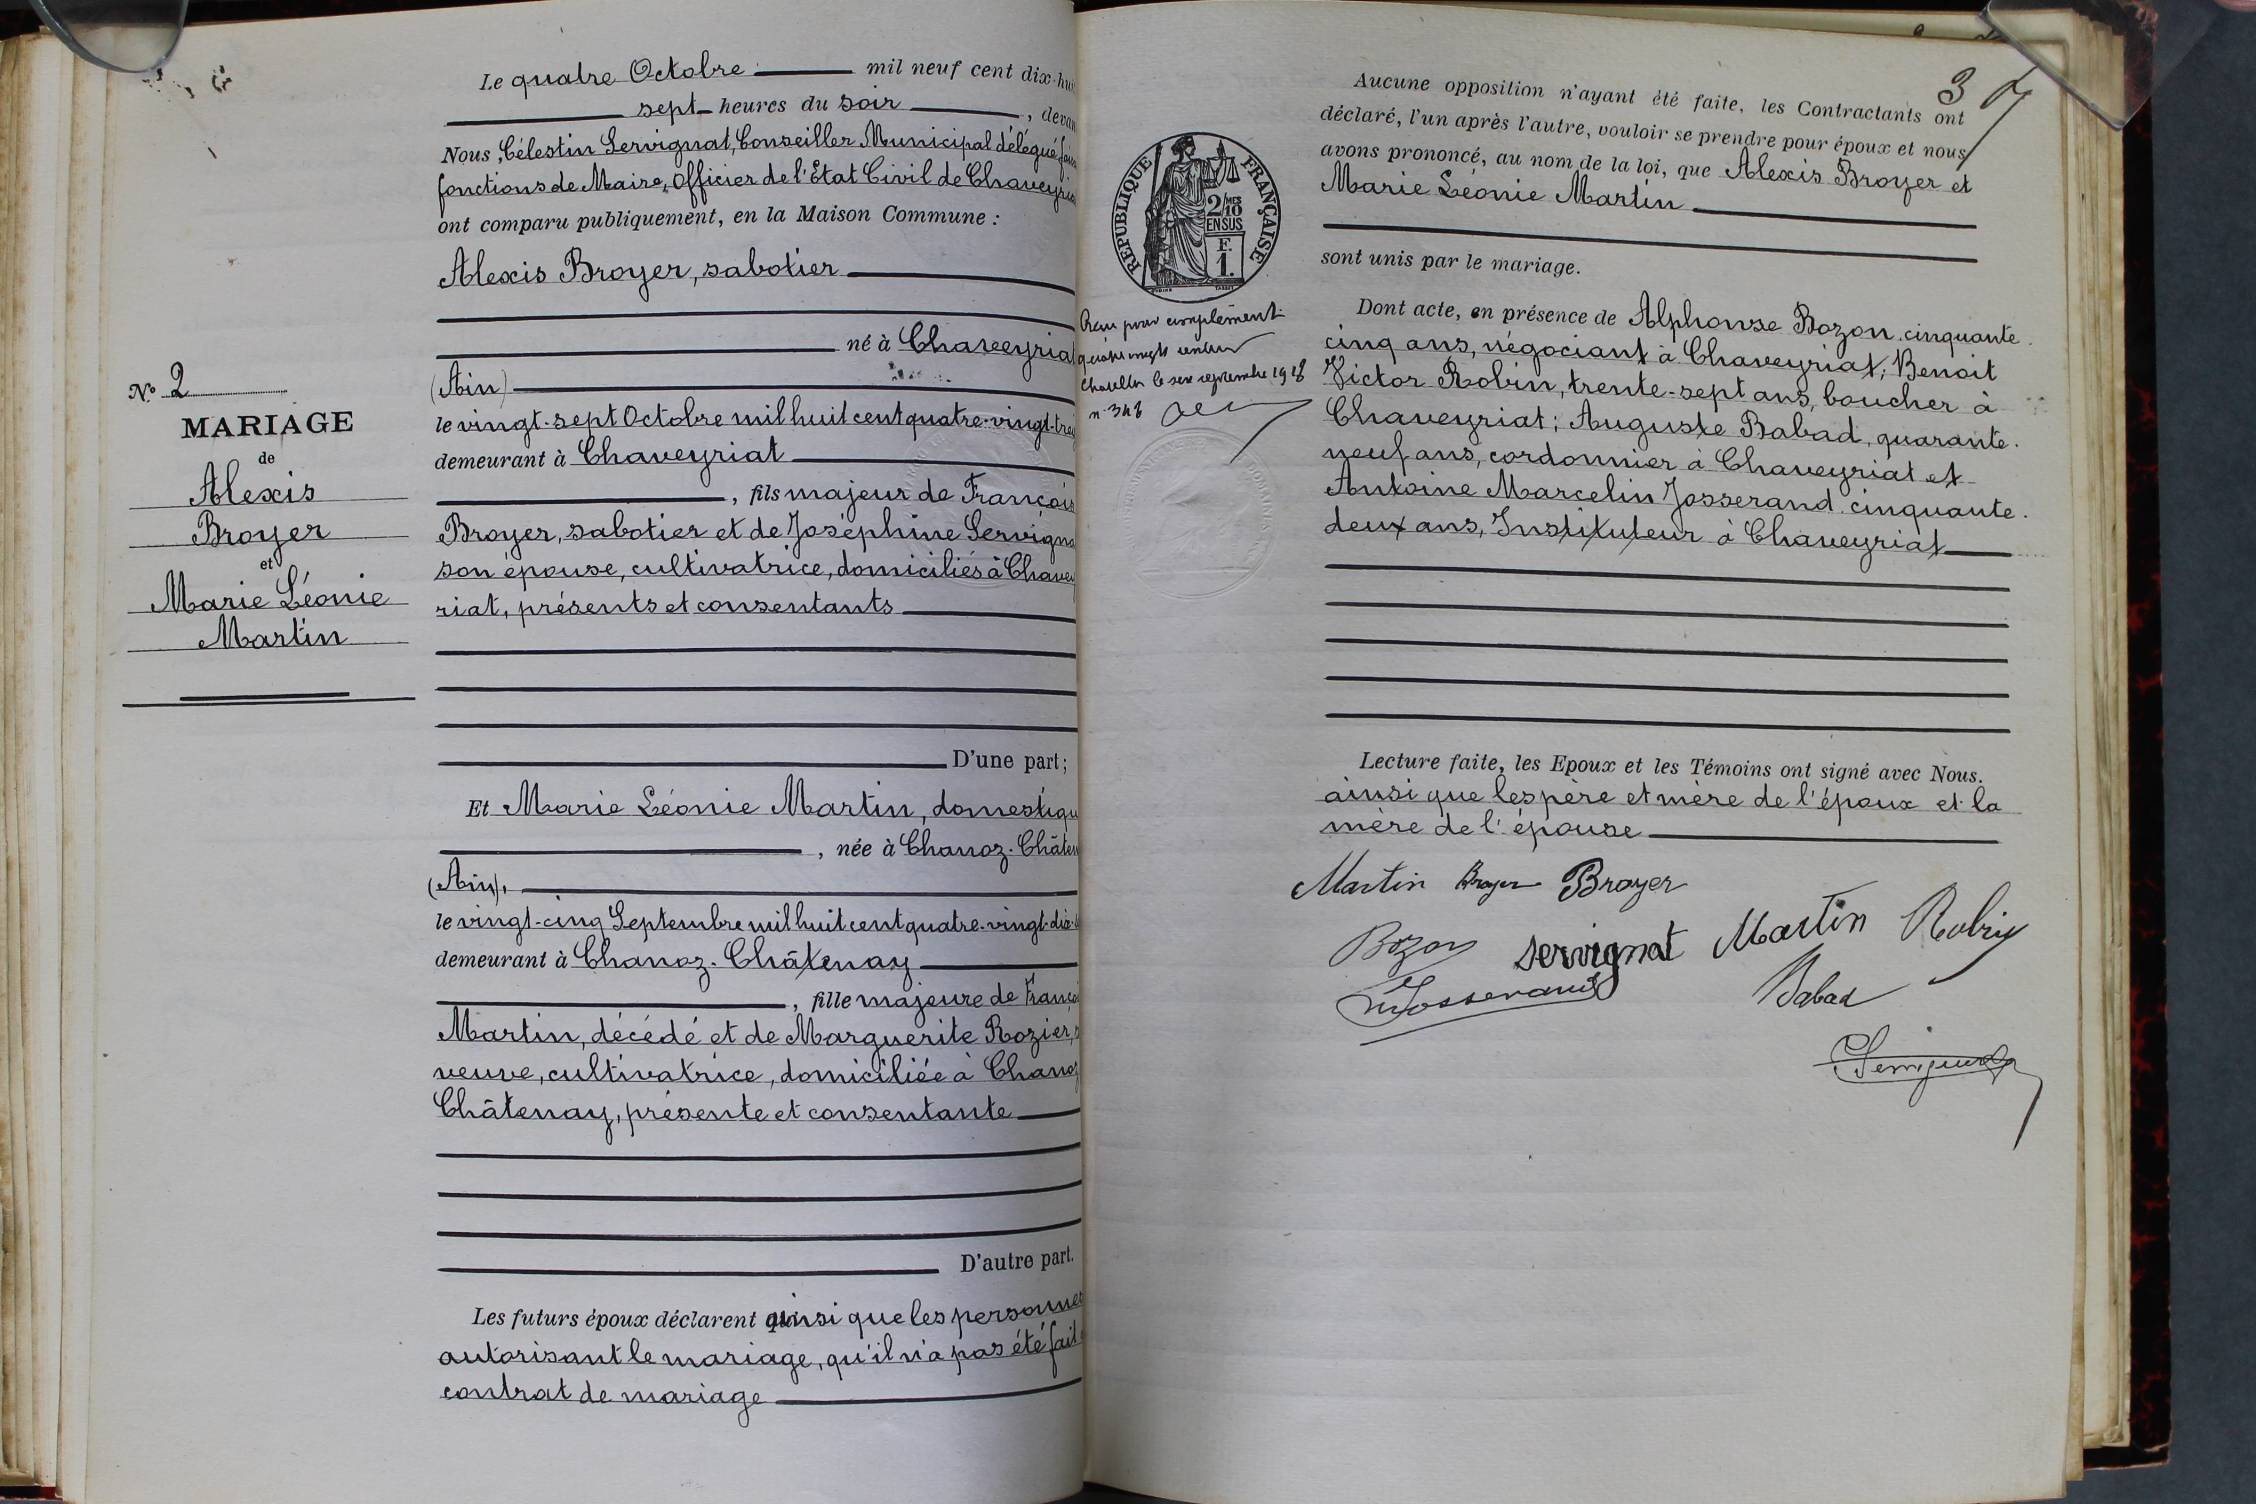 Le quatre Octobre mil neuf cent dix-hui
sept heures du soir, devan
Nous, Célestin Servignat, Conseiller Municipal délégué fais
fonctions de Maire, Officier de l'État Civil de Chaveyria
ont comparu publiquement, en la Maison Commune :
Alexis Broyer, sabotier
né à Chaveyriat
(Ain)
le vingt-sept Octobre mil huit cent quatre-vingt-trei
demeurant à Chaveyriat
, fils majeur de François
Broyer, sabotier et de Joséphine Servigna
son épouse, cultivatrice, domiciliés à Chavey
riat, présents et consentants
D'une part;
Et Marie Léonie Martin, domestiqu
, née à Chanoz-Châten
(Ain),
le vingt-cinq Septembre mil huit cent quatre-vingt-dix-
demeurant à Chanoz-Châtenay
, fille majeure de Franço
Martin, décédé et de Marguerite Rozier, s
veuve, cultivatrice, domiciliée à Chanoz
Châtenay, présente et consentante
D'autre part.
Les futurs époux déclarent ainsi que les personnes
autorisant le mariage, qu'il n'a pas été fait
contrat de mariage
N° 2
MARIAGE
de
Alexis
Broyer
et
Marie Léonie
Martin
3
Aucune opposition n'ayant été faite, les Contractants ont
déclaré, l'un après l'autre, vouloir se prendre pour époux et nous
avons prononcé, au nom de la loi, que Alexis Broyer et
Marie Léonie Martin
sont unis par le mariage.
Dont acte, en présence de Alphonse Bozon, cinquante-
cinq ans, négociant à Chaveyriat; Benoit
Victor Robin, trente-sept ans, boucher à
Chaveyriat; Auguste Babad, quarante-
neuf ans, cordonnier à Chaveyriat et
Antoine Marcelin Josserand cinquante-
deux ans, Instituteur à Chaveyriat
Lecture faite, les Epoux et les Témoins ont signé avec Nous.
ainsi que les père et mère de l'époux et la
mère de l'épouse
Martin Broyer Broyer
Bozon Servignat Martin Robin
Josserand Babad
Servignat
RÉPUBLIQUE FRANÇAISE
2/10 MES
EN SUS
F.
1.
Reçu pour complément
quatre vingts centimes
Chatillon le six septembre 1918
n° 348